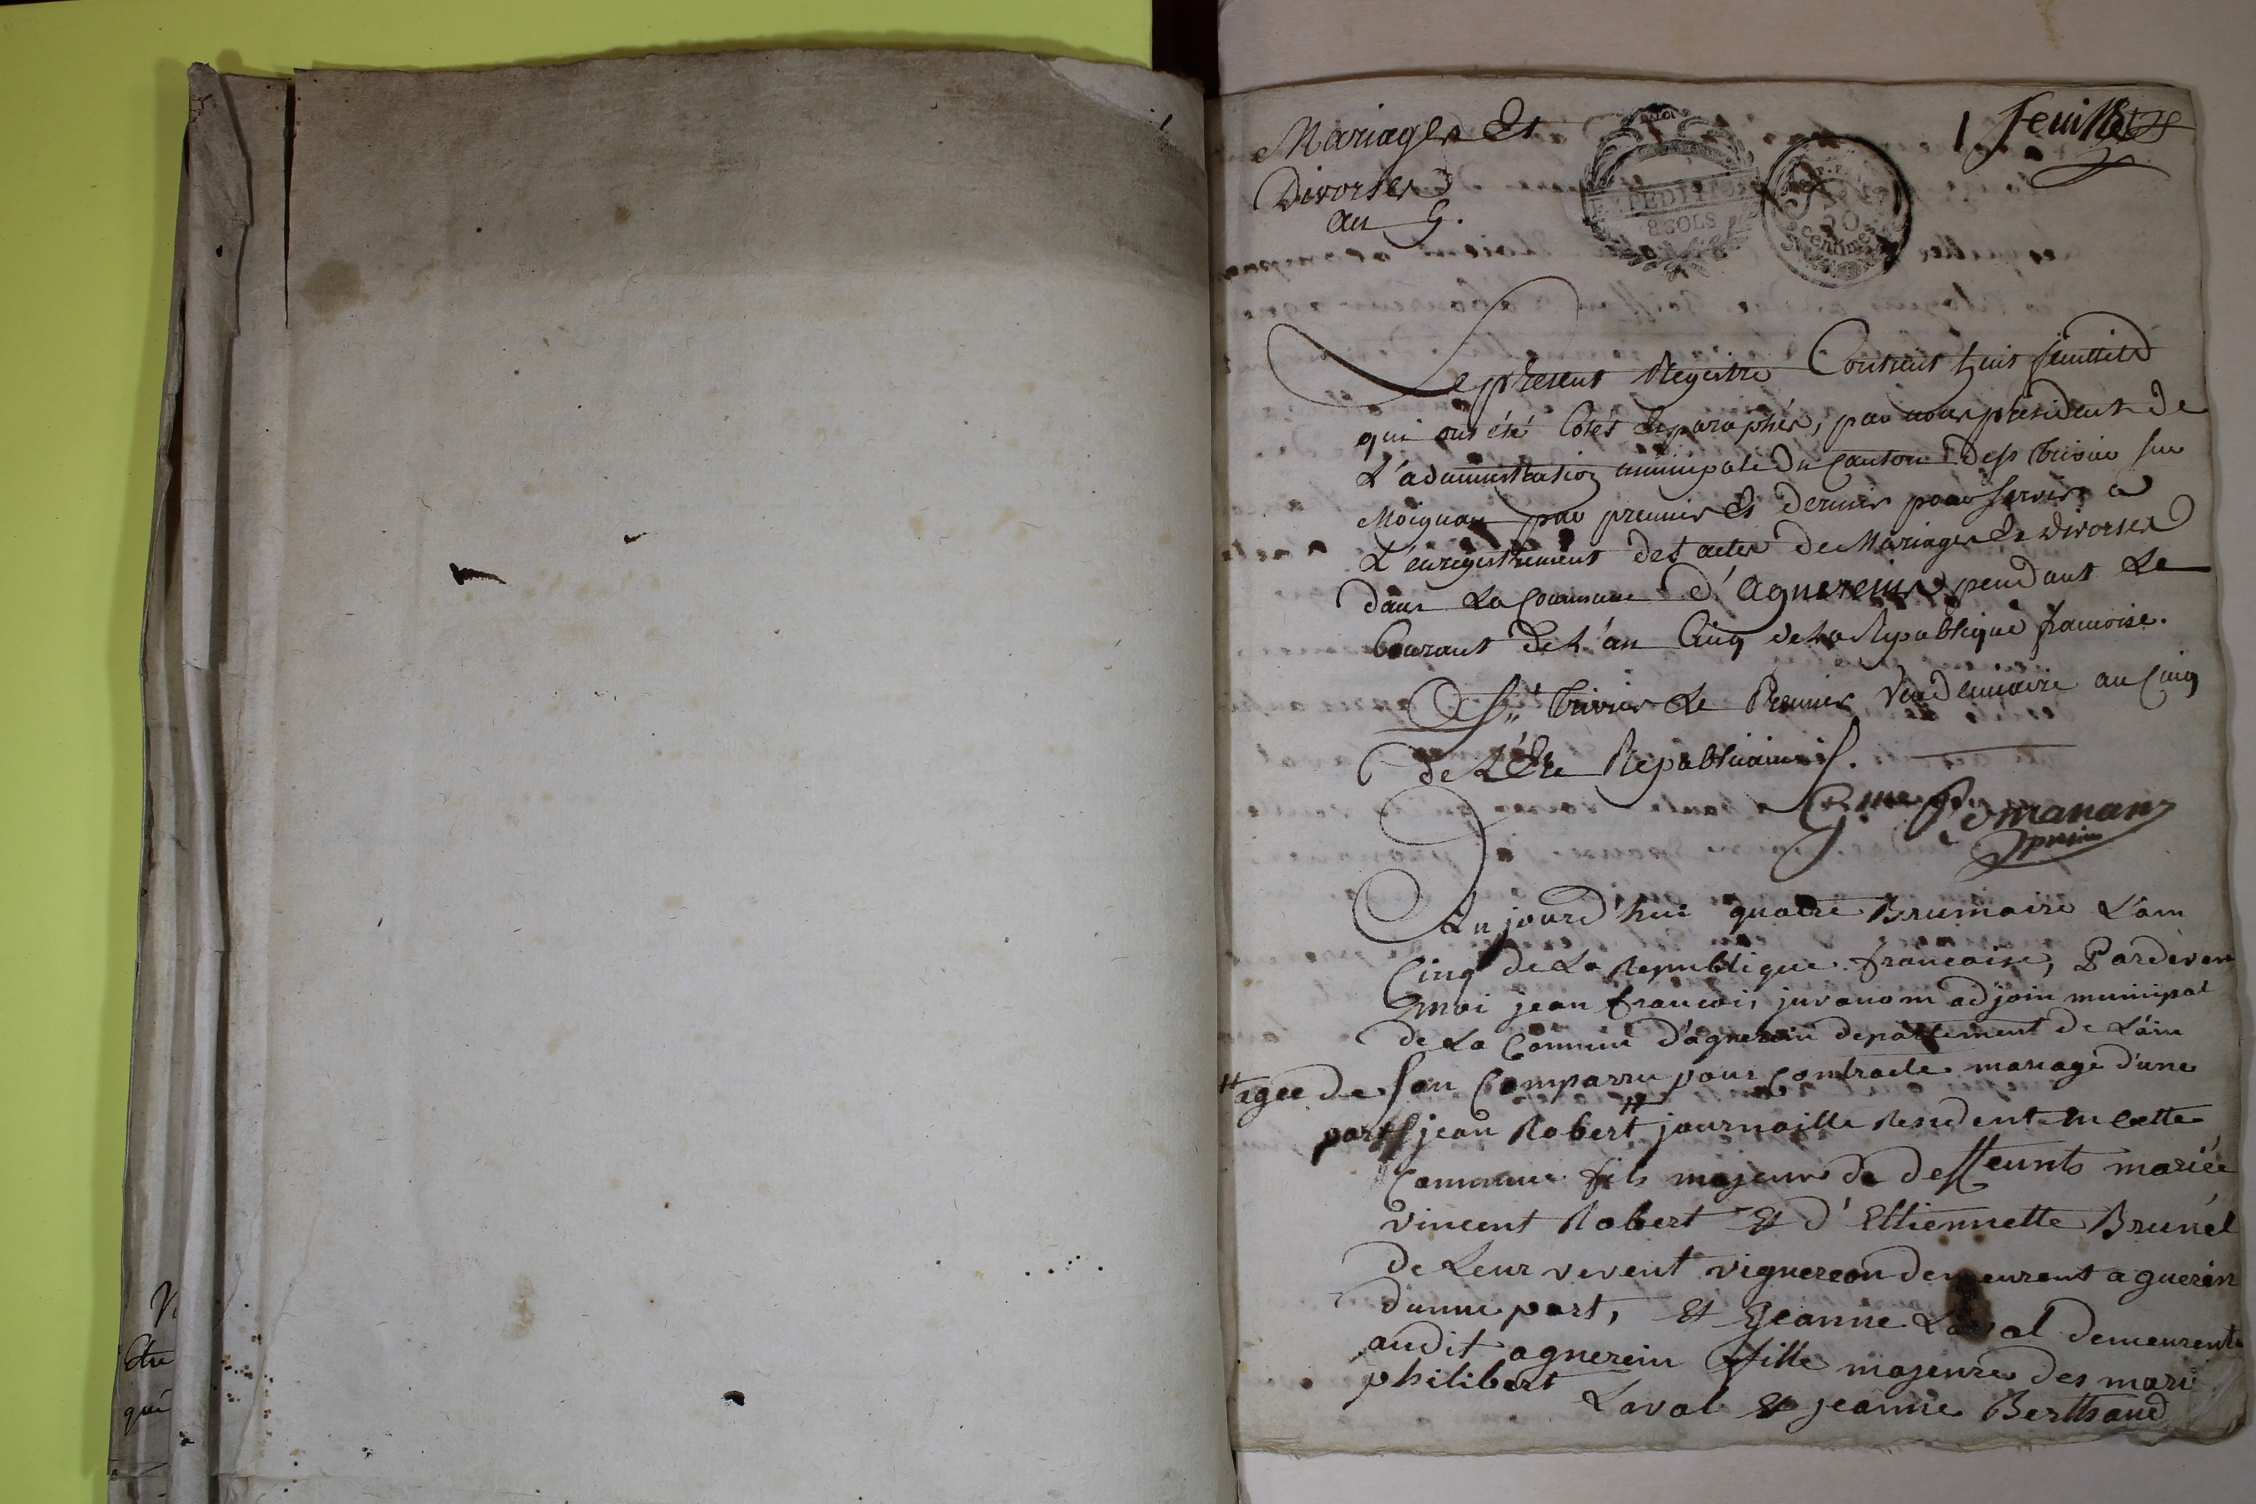 Mariages Et
Divorses
an 5.
EXPEDITION
8 SOLS
50
centimes
1 feuillet
Le present Registre Contient huit feuillets
qui ont été Cotés et paraphés, par nous president de
L'administration municipale du Canton de St Trivier sur
Moignan par premier et dernier pour servir a
L'enregistrement des actes de Mariages et Divorses
dans La Commune d'agnereins pendant Le
Courant de L'an Cinq de La Republique francoise.
A St Trivier Le Premier Vendemiaire an Cinq
de L'Ere Republicaine.
Romanans
presid
Aujourd'hui quatre Brumaire L'an
Cinq de La Republique francaise, Pardeven
moi jean francois juvanom adjoin municipal
de La Commune d'agnerein departement de L'ain
# agee de son Comparru pour Contracte mariage d'une
part jean Robert # journaille Resident En cette
Commune fils majeur de deffeunts mariée
vincent Robert Et d'Ettiennette Brunel
de Leur vivent vignereon demeurent a guerin
dunne part, Et Jeanne Laval demeurente
audit agnerein fille majeure des mari
philibert Laval Et jeanne Berthaud
Vi
Etre
qui